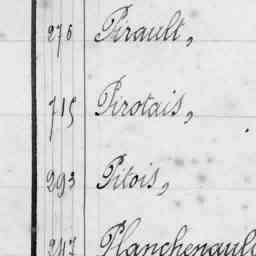 276 Pirault,
715 Pirotais,
293 Pitois,
247 Planchenault